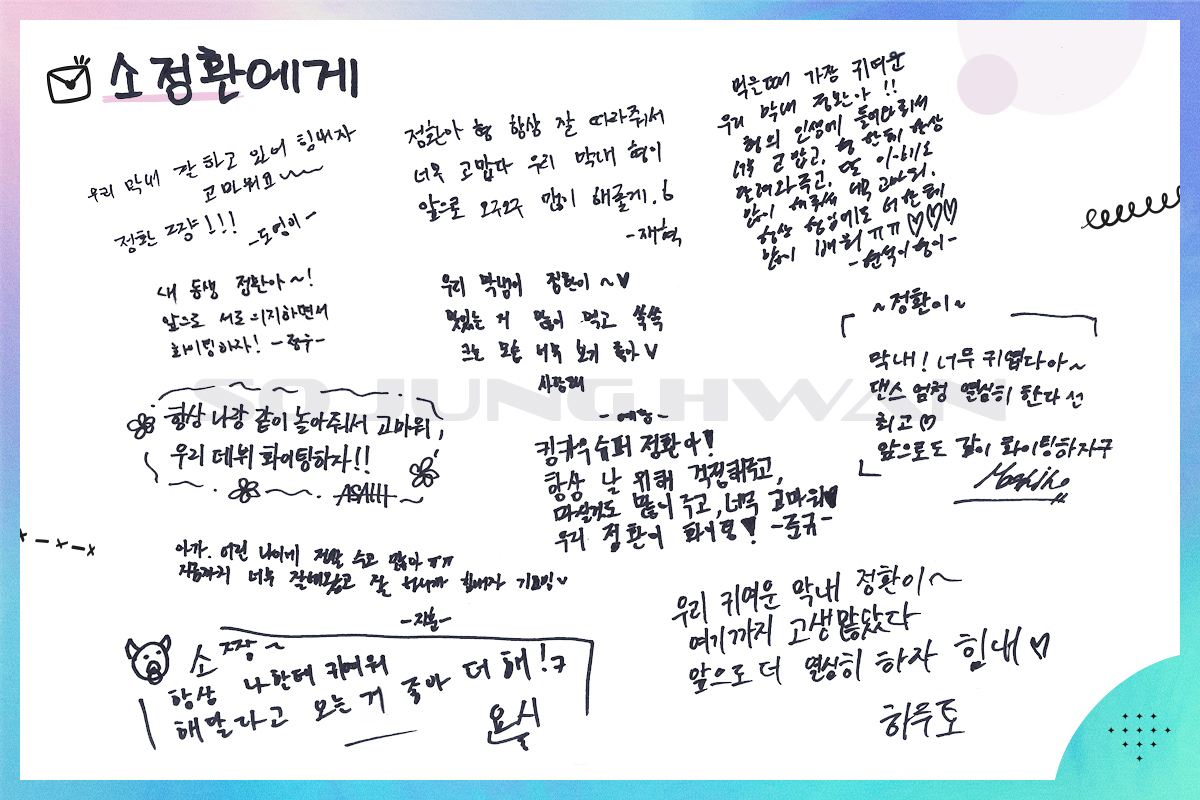 소정환에게
우리 막내 잘 하고 있어 힘내자
고마워요~~
정환 짱!!!
-도영이-
정환아 형 항상 잘 따라줘서
너무 고맙다 우리 막내 형이
앞으로 오구오구 많이 해줄게.
-재혁
먹을때 가장 귀여운
우리 막내 정환아!!
형의 인생에 들어와줘서
너무 고맙고, 형 한테 항상
주고,
많이 해줘서 너무 고마워.
항상
많이 ㅠㅠ♡♡♡
내 동생 정환아~!
앞으로 서로 의지하면서
화이팅하자!
우리 막냉이 정환이~♥
맛있는 거 많이 먹고 쑥쑥
크는 모습 너무 보기 좋아♥
사랑해
-예담-
~정환이~
막내! 너무 귀엽다아~
댄스 엄청 열심히 한다 선
최고♡
앞으로도 같이 화이팅하자구
Mashiho
항상 나랑 같이 놀아줘서 고마워,
우리 데뷔 화이팅하자!!
ASAHI
슈퍼 정환아!
항상 날 위해 걱정해주고,
많이 주고, 너무 고마워♥
우리 정환이 화이팅! -준규-
아가. 어린 나이에 정말 수고 많아 ㅠㅠ
지금까지 너무 잘해왔고 잘 하니까 힘내자
-지훈-
소짱~
항상 나한테 귀여워
해달라고 오는거 좋아 더 해!
요시
우리 귀여운 막내 정환이~
여기까지 고생많았다
앞으로 더 열심히 하자 힘내♡
하루토
SO JUNG HWAN